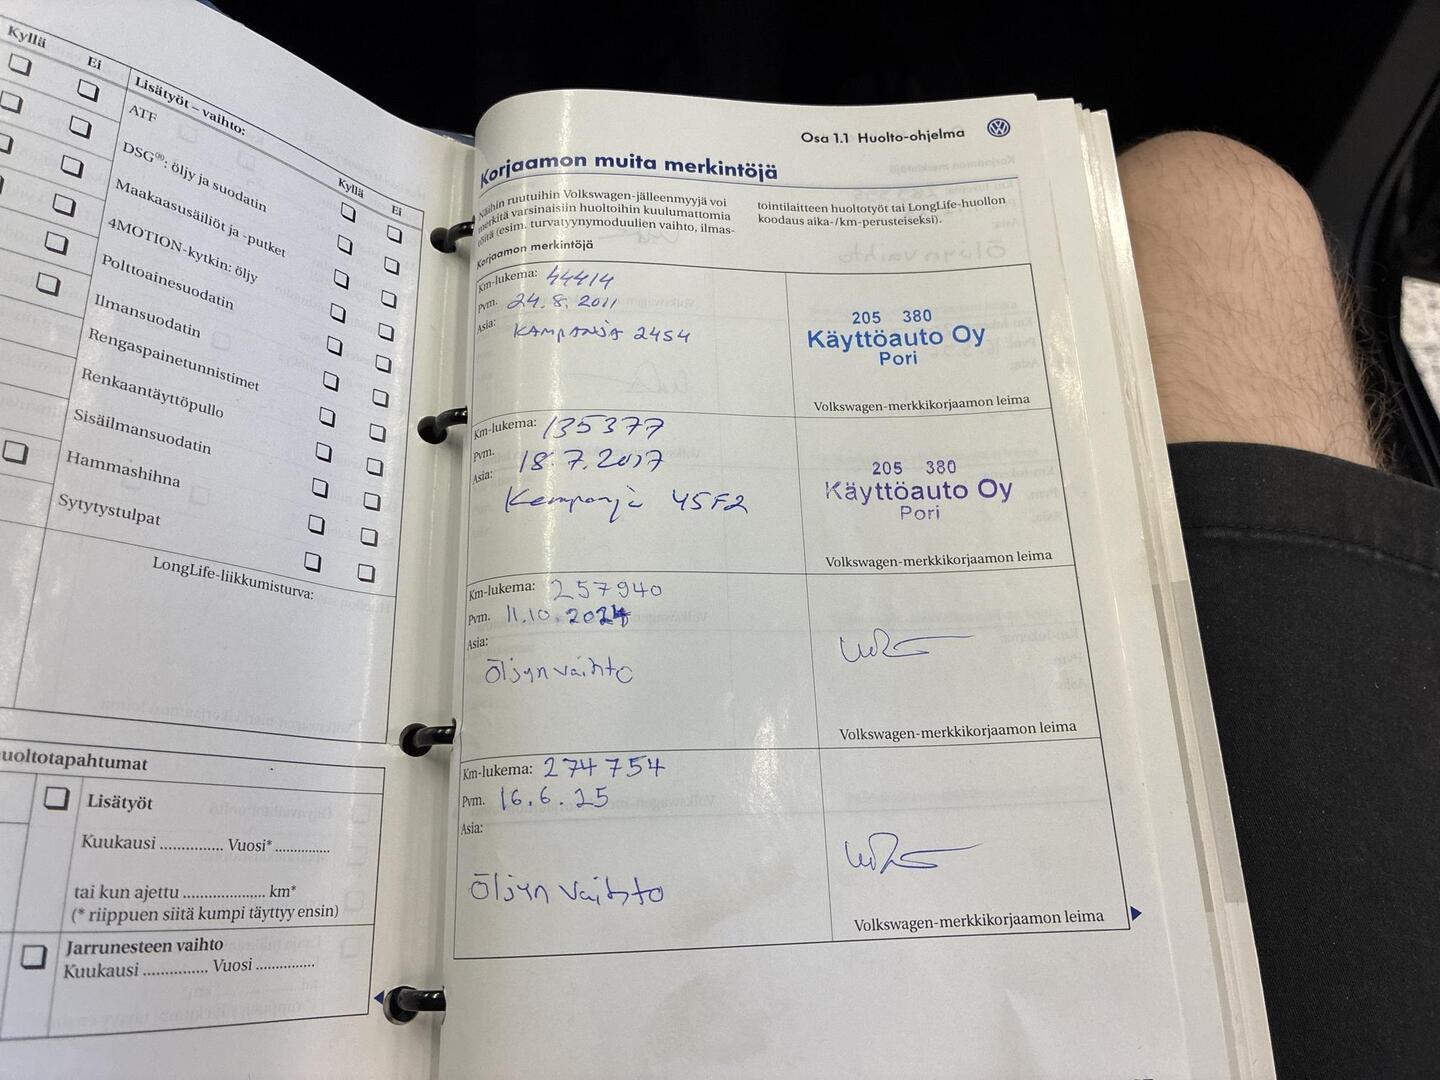 Kyllä Ei
Lisätyöt – vaihto:
Kyllä Ei
ATF
DSG®: öljy ja suodatin
Maakaasusäiliöt ja -putket
4MOTION-kytkin: öljy
Polttoainesuodatin
Ilmansuodatin
Rengaspainetunnistimet
Renkaantäyttöpullo
Sisäilmansuodatin
Hammashihna
Sytytystulpat
LongLife-liikkumisturva:
uoltotapahtumat
Lisätyöt
Kuukausi ............... Vuosi* ..............
tai kun ajettu ..................... km*
(* riippuen siitä kumpi täyttyy ensin)
Jarrunesteen vaihto
Kuukausi ............... Vuosi ...............
Osa 1.1 Huolto-ohjelma
Korjaamon muita merkintöjä
Näihin ruutuihin Volkswagen-jälleenmyyjä voi
merkitä varsinaisiin huoltoihin kuulumattomia
töitä (esim. turvatyynymoduulien vaihto, ilmas-
tointilaitteen huoltotyöt tai LongLife-huollon
koodaus aika-/km-perusteiseksi).
Korjaamon merkintöjä
Km-lukema: 44414
Pvm. 24.8.2011
Asia: KAMPANJA 24S4
205 380
Käyttöauto Oy
Pori
Volkswagen-merkkikorjaamon leima
Km-lukema: 135377
Pvm. 18.7.2017
Asia: Kampanja 45F2
205 380
Käyttöauto Oy
Pori
Volkswagen-merkkikorjaamon leima
Km-lukema: 257940
Pvm. 11.10.2024
Asia:
Öljyn vaihto
Volkswagen-merkkikorjaamon leima
Km-lukema: 274754
Pvm. 16.6.25
Asia:
Öljyn vaihto
Volkswagen-merkkikorjaamon leima